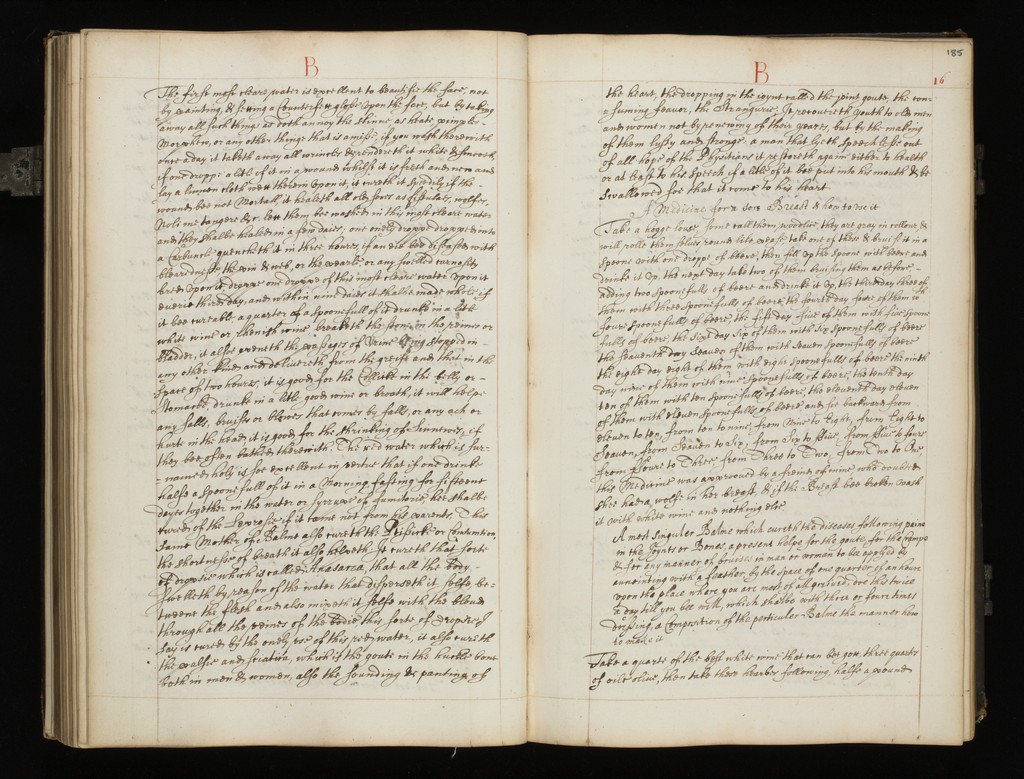 B
The first most cleare water is excellent to beautifie the face, not
by painting, & setting a Counterfett glosse upon the face, but by takeing
away all such things as doth annoy the skinne as heate, pimples
Morphew, or any other things that is amisse, if you wash therewith
once a day it taketh away all wrinckles & rendreth it white & smooth
if one droppe a litle of it in a wound whilst it is fresh and new and
lay a linnen cloth wett therein upon it, it cureth it speedily if the
wound bee not Mortall, it healeth all old sores as fistulaes, wolfes,
Noli me tangere &c. lett them bee washed in this most cleare water
and they shalbe healed in a few daies, one onely droppe dropped into
a Carbuncle quencheth it in three hours, if an eie bee diseased with
blearednesse the pin & web, or the pearle, or any swelled carnosity
bred upon it droppe one droppe of this most cleare water upon it
everie third day, and within nine daies it shalbe made whole if
it bee cureable, a quarter of a spoonefull of it drunke in a litle
white wine or Rhenish wine breaketh the stone in the reines or
bladder, it also openeth the passages of Urine being stopped in
any other kind, and delivereth from the greife and that in the
space of two hours, it is good for the Collicke in the belly or
stomacke, drunke in a litle good wine or broath, it will helpe
any falls, bruises or blowes that comes by falls, or any ach or
hurt in the head, it is good for the shrinking of sinnewes, if
they bee often bathed therewith. The red water which is sur-
named holy is soe excellent in vertue that if one drinke
halfe a spoonefull of it in a Morning fasting for fifteene
dayes together in the water or syrrupe of fumitorie, hee shalbe
cured of the Leprosie if it came not from his parents. This
same Mother of Balme also cureth the Ptisicke or Consumtion,
the shortnesse of breath it also helpeth, it cureth that sorte
of dropsie which is called Anasarca, that all the body
swelleth by reason of the water that disperseth it selfe be-
tweene the flesh and also mixeth it selfe with the bloud
through all the veines of the bodie this sorte of dropsie I
say is cured by the onely use of this red water, it also cureth
the palsie and sciatica, which is the goute in the huckle bone
both in men & women, also the sounding & panting of
185
16
B
the heart, the dropping in the joynt called the joint goute, the con-
suming feaver, the Strangurie. It recovereth youth to old men
and women not by renewing of their yeares, but by the making
of them lusty and stronge. a man that lyeth speechlesse out
of all hope of the Physitians it restoreth againe either to health
or at least to his speech if a litle of it bee put into his mouth & be
swallowed soe that it come to his heart.
A Medicine for a sore Breast & how to use it
Take a hogge louse, some call them woodlice they are gray in collour, &
will rolle them selves round like pease take one of these & bruise it in a
spoone with one droppe of beere, then fill up the spoone with beere and
drinke it up, the next day take two of them bruising them as before
adding two spoonefulls of beere and drinke it up, the third day three of
them with three spoonefulls of beere, the fourth day foure of them in
foure spoonefulls of beere, the fift day five of them with five spoone
fulls of beere, the sixt day six of them with six spoonefulls of beere
the seaventh day seaven of them with seaven spoonefulls of beere
the eight day eight of them with eight spoonefulls of beere the ninth
day nine of them with nine spoonefulls of beere, the tenth day
ten of them with ten spoonefulls of beere, the eleventh day eleven
of them with eleven spoonefulls of beere and soe backward from
eleven to ten, from ten to nine, from Nine to Eight, from Eight to
Seaven, from Seaven to Six, from Six to Five, from Five to foure
from Foure to Three, from Three to Two, from Two to One
this Medicine was approoved by a freind of mine who doubted
shee had a wolfe in her breast, & if the Breast bee broken wash
it with white wine and nothing else
A most singuler Balme which cureth the diseases following paine
in the Joynts or Bones, a present helpe for the goute, for the crampe
& for any manner of bruises in man or woman to be applied by
annointing with a feather by the space of one quarter of an houre
upon the place where you are most of all greived, doe this twise
a day till you bee well, which shalbe with three or foure times
dressing, a Composition of the perticuler Balme the manner how
to make it
Take a quarte of the best white wine that can bee gott, three quarts
of oile olive, then take these hearbes following, halfe a pound